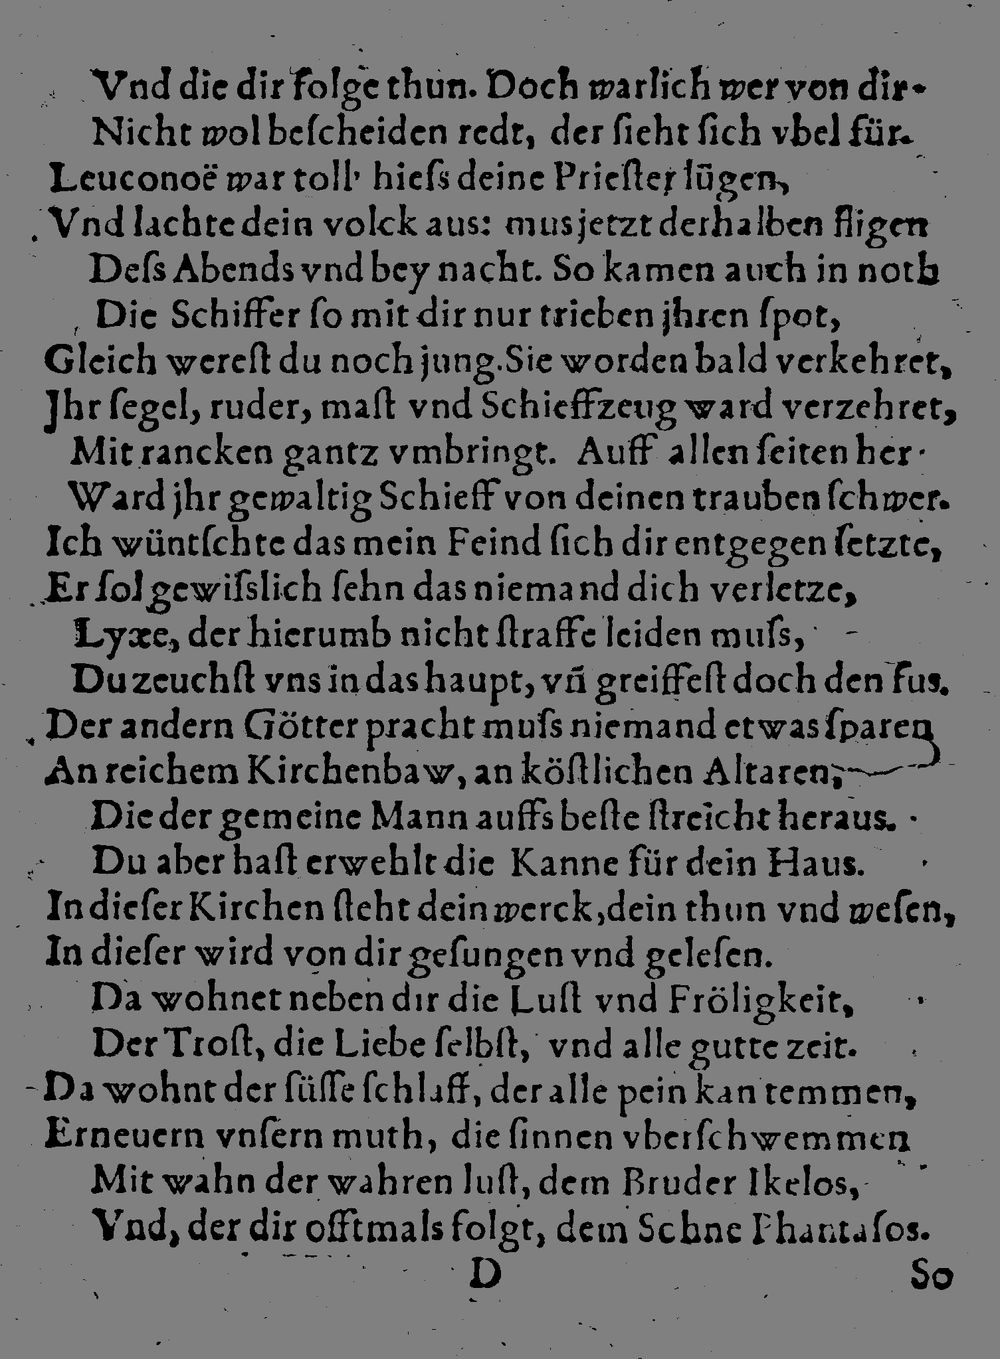 Vnd die dir folge thun. Doch warlich wer von dir
Nicht wol beſcheiden redt, der ſieht ſich vbel für.
Leuconoë war toll' hieſs deine Prieſter lũgen,
Vnd lachte dein volck aus: mus jetzt derhalben fligen
Deſs Abends vnd bey nacht. So kamen auch in noth
Die Schiffer ſo mit dir nur trieben jhren ſpot,
Gleich wereſt du noch jung. Sie worden bald verkehret,
Jhr ſegel, ruder, maſt vnd Schieffzeug ward verzehret,
Mit rancken gantz vmbringt. Auff allen ſeiten her
Ward jhr gewaltig Schieff von deinen trauben ſchwer.
Ich wüntſchte das mein Feind ſich dir entgegen ſetzte,
Er ſol gewiſslich ſehn das niemand dich verletze,
Lyæe, der hierumb nicht ſtraffe leiden muſs,
Du zeuchſt vns in das haupt, vñ greiffeſt doch den fus.
Der andern Götter pracht muſs niemand etwas ſparen
An reichem Kirchenbaw, an köſtlichen Altaren,
Die der gemeine Mann auffs beſte ſtreicht heraus.
Du aber haſt erwehlt die Kanne für dein Haus.
In dieſer Kirchen ſteht dein werck, dein thun vnd weſen,
In dieſer wird von dir geſungen vnd geleſen.
Da wohnet neben dir die Luſt vnd Fröligkeit,
Der Troſt, die Liebe ſelbſt, vnd alle gutte zeit.
Da wohnt der ſüſſe ſchlaff, der alle pein kan temmen,
Erneuern vnſern muth, die ſinnen vberſchwemmen
Mit wahn der wahren luſt, dem Bruder Ikelos,
Vnd, der dir offtmals folgt, dem Sehne Phantaſos.
D So